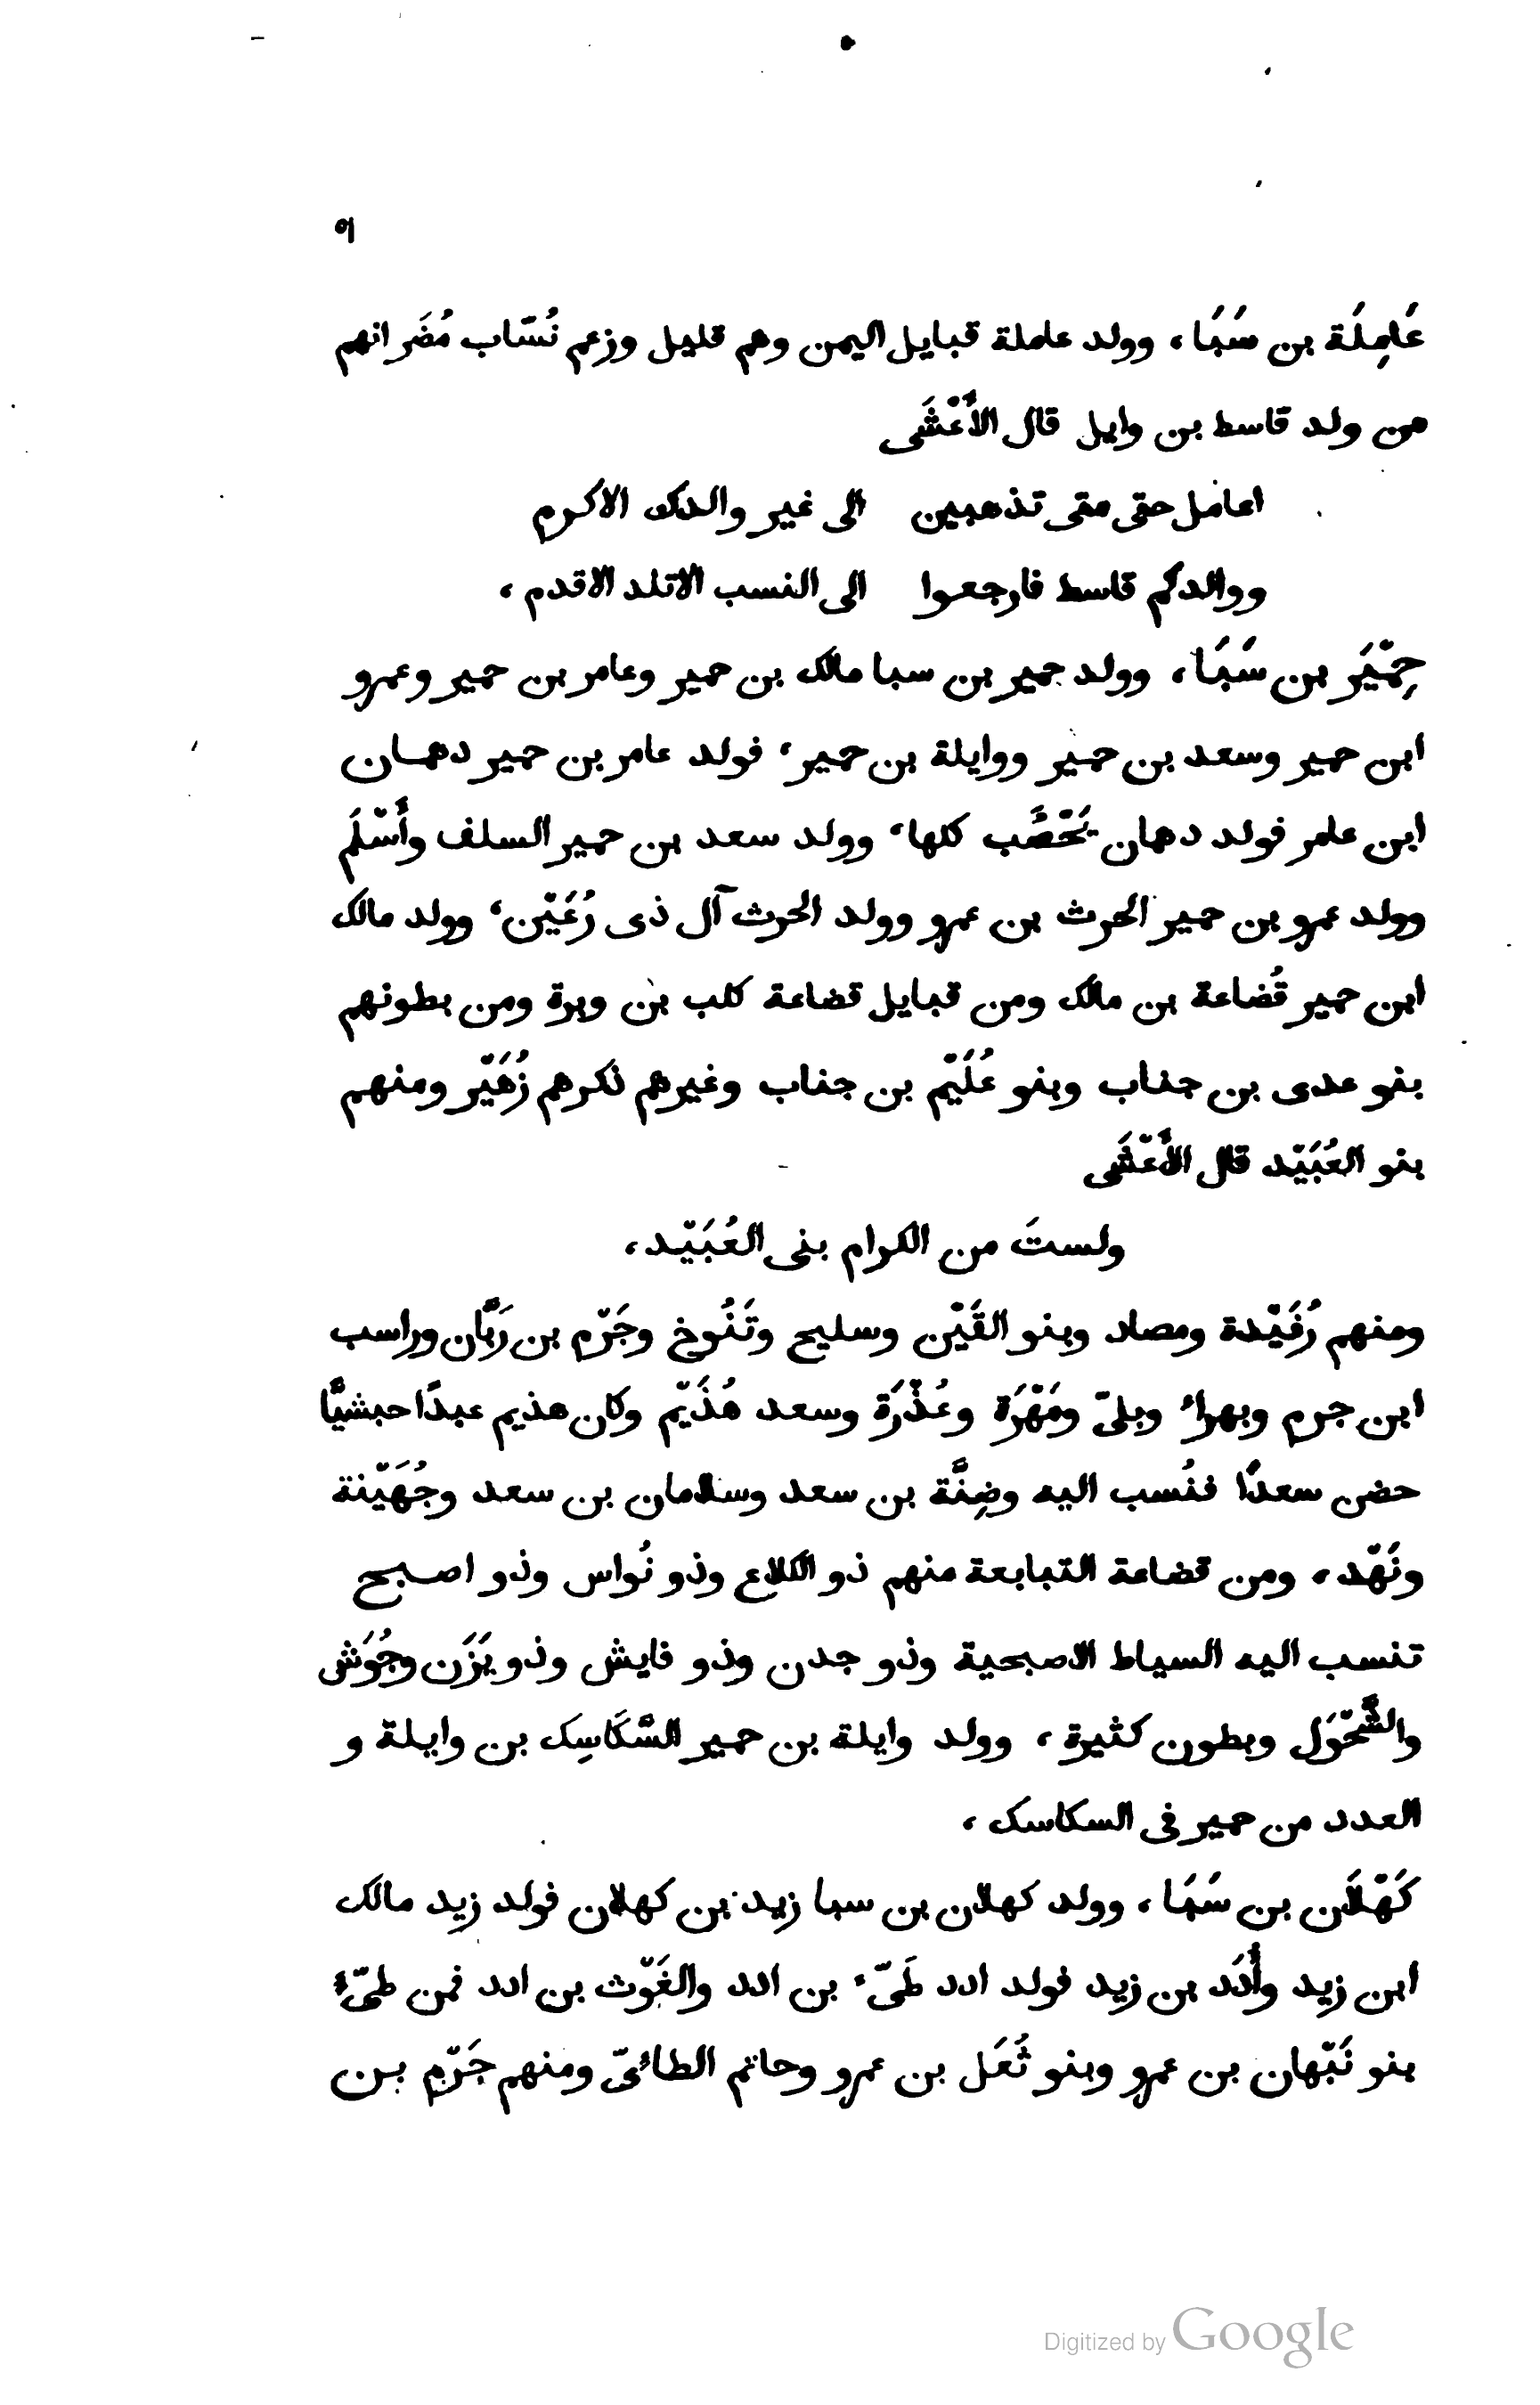 ٥١
عَامِلَة بن سَبَا، وولد عاملة قبايل اليمن وهم قليل وزعم نُسّاب مُضَر انهم
من ولد قاسط بن وايل قال الأَعْشَى
اعامل حتى متى تذهبين الى غير والدك الاكرم
ووالدكم قاسط فارجعوا الى النسب الاتلد الاقدم،
حِمْيَر بن سَبَا، وولد حمير بن سبا مالك بن حمير وعامر بن حمير وعمرو
ابن حمير وسعد بن حمير ووايلة بن حمير، فولد عامر بن حمير دهمان
ابن عامر فولد دهمان يَحْصُب كلها، وولد سعد بن حمير السلف وأَسْلَم
وولد عمرو بن حمير الحرث بن عمرو وولد الحرث آل ذى رُعَيْن، وولد مالك
ابن حمير قُضاعة بن مالك ومن قبايل قضاعة كلب بن وبرة ومن بطونهم
بنو عدى بن جناب وبنو عُلَيْم بن جناب وغيرهم ذكرهم زُهَيْر ومنهم
بنو العُبَيْد قال الأَعْشَى
ولستَ من الكرام بنى العُبَيْد،
ومنهم رُفَيْدة ومصاد وبنو القَيْن وسليح وتَنُوخ وجَرْم بن رَبَّان وراسب
ابن جرم وبهراء وبلىّ ومَهْرَة وعُذْرَة وسعد هُذَيْم وكان هذيم عبدًا حبشيًّا
حضن سعدًا فنُسب اليه وضِنَّة بن سعد وسلامان بن سعد وجُهَيْنة
ونَهْد، ومن قضاعة التبابعة منهم ذو الكلاع وذو نُواس وذو اصبح
تنسب اليه السياط الاصبحية وذو جدن وذو فايش وذو يَزَن وجُوَش
والشَّحْوَل وبطون كثيرة، وولد وايلة بن حمير السَّكَاسِك بن وايلة و
العدد من حمير فى السكاسك،
كَهْلَان بن سَبَا، وولد كهلان بن سبا زيد بن كهلان فولد زيد مالك
ابن زيد وأُدَد بن زيد فولد ادد طَىّء بن ادد والغَوْث بن ادد فمن طىّء
بنو نَبْهان بن عمرو وبنو ثُعَل بن عمرو وحاتم الطائىّ ومنهم جَرْم بن
Digitized by Google